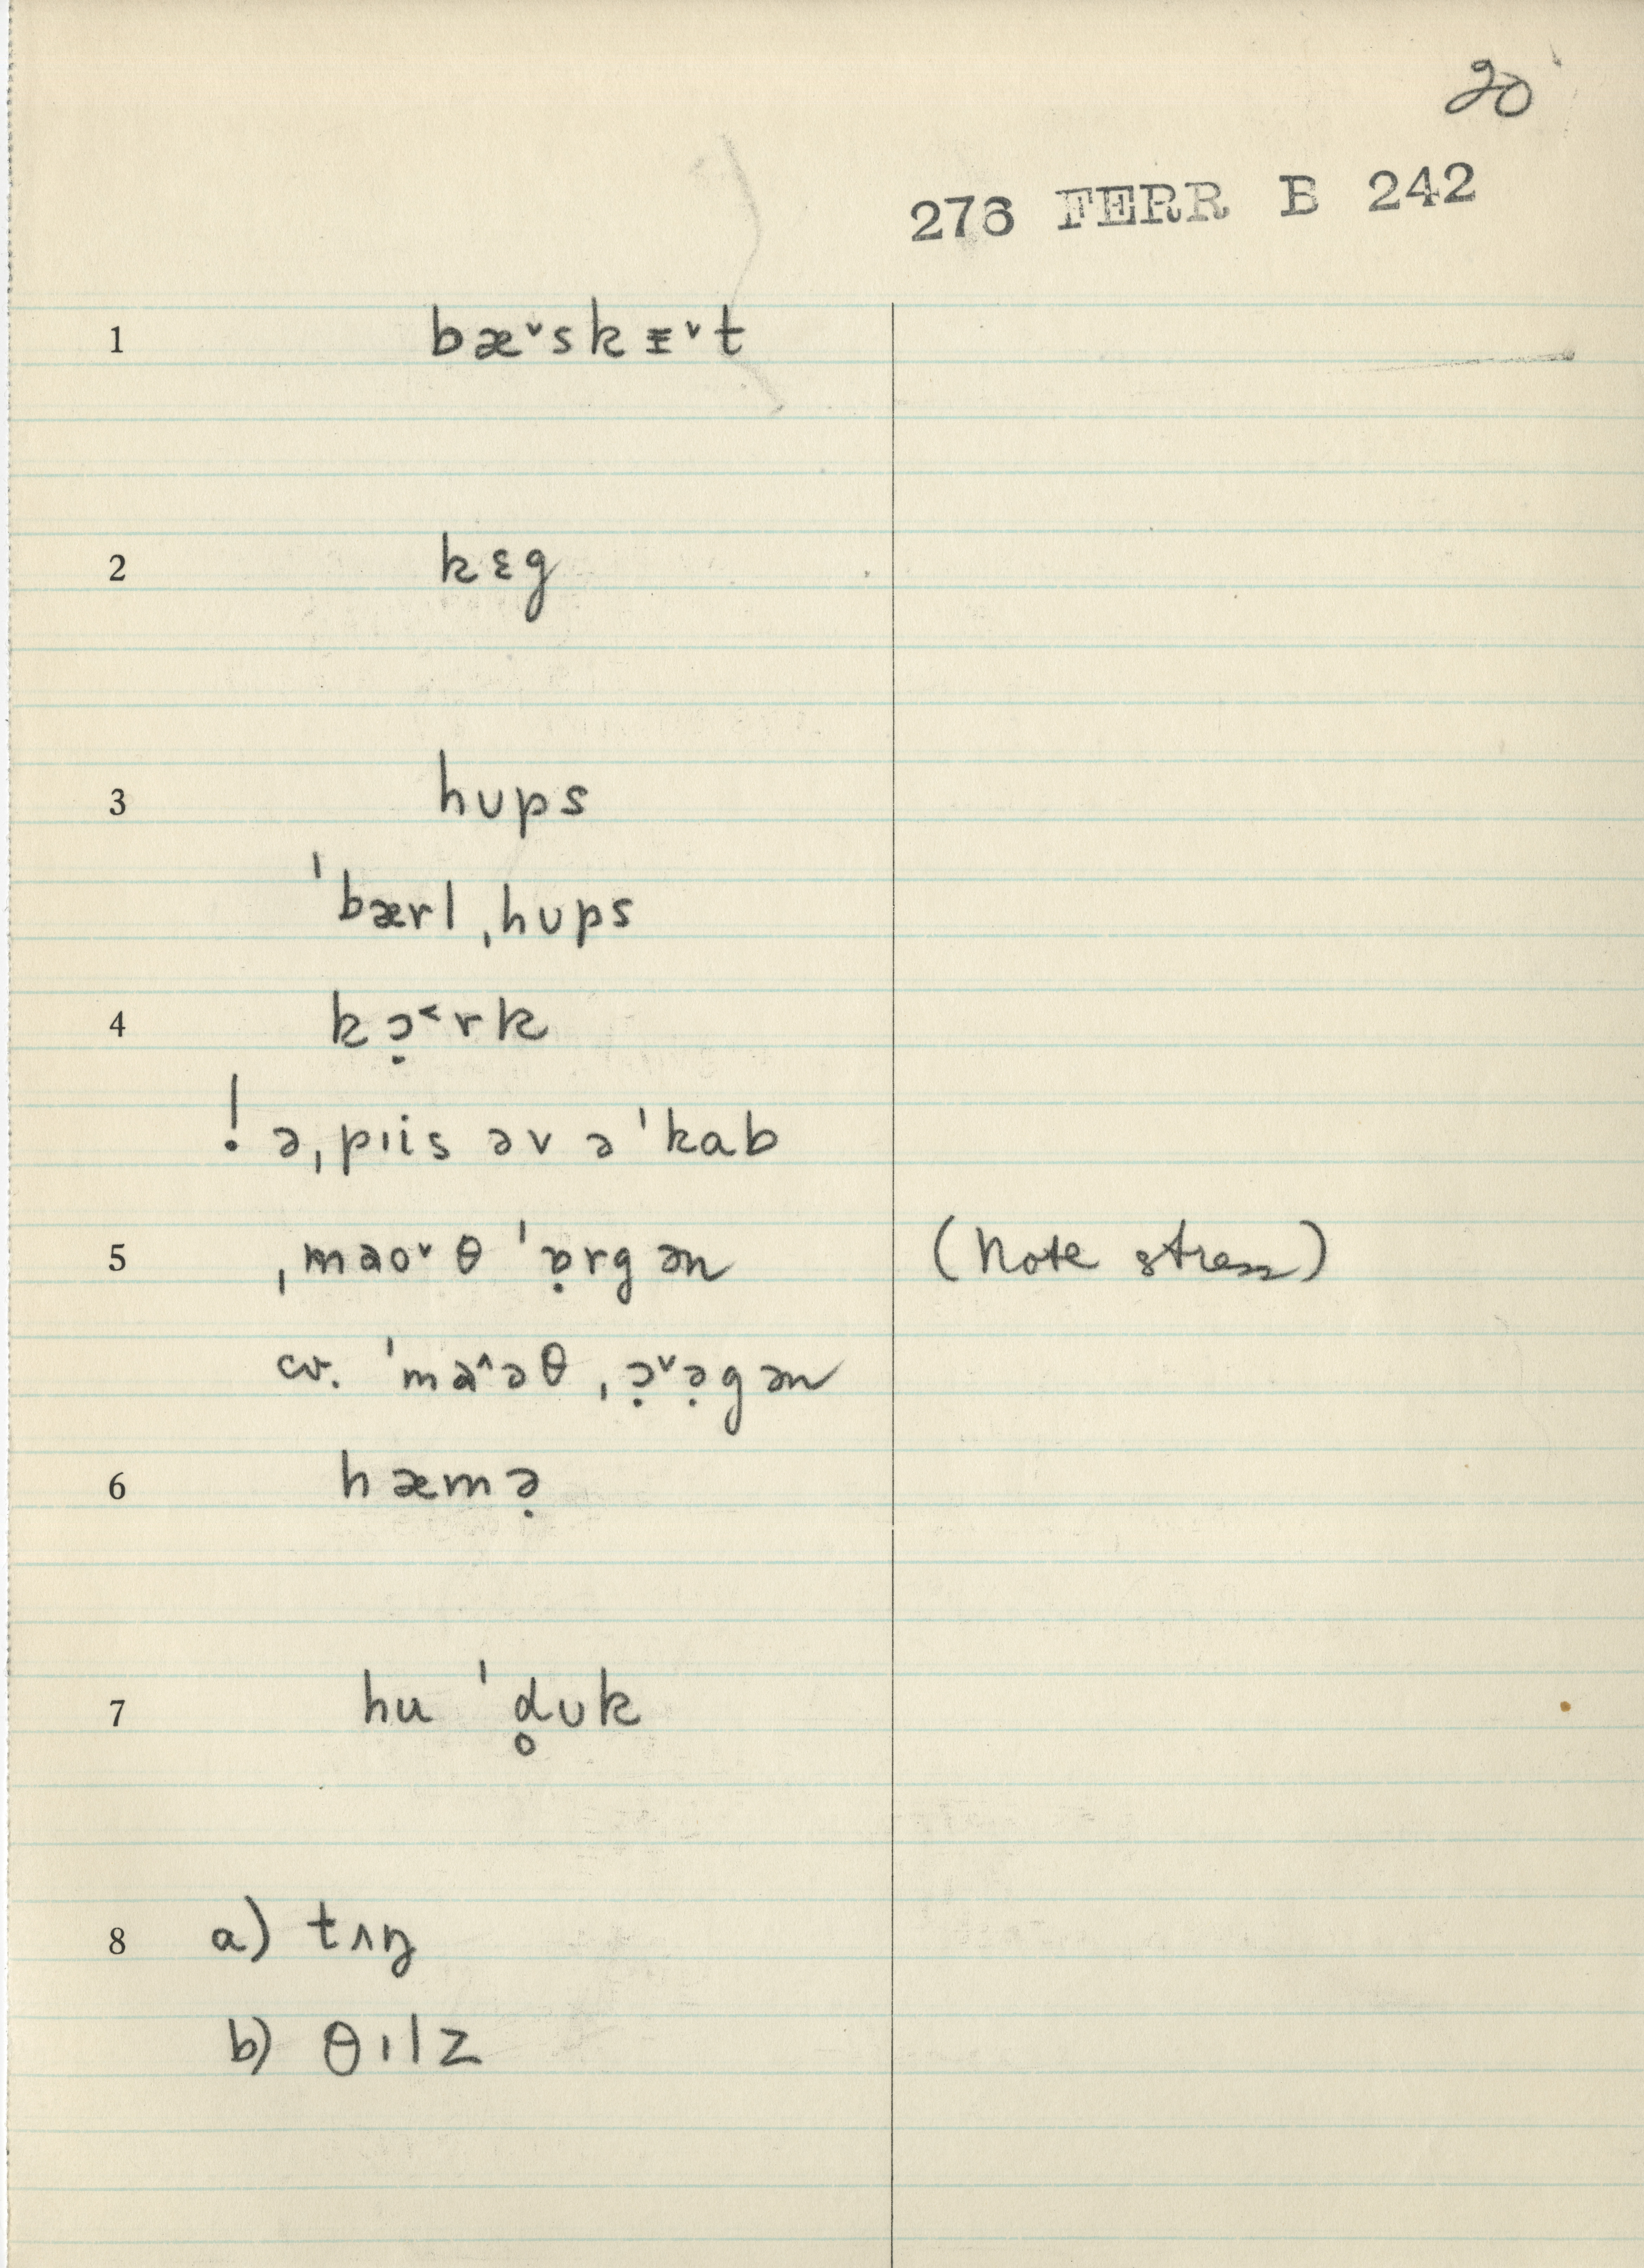 20
276 FERR B 242
1 bæ˅skᵻ˅t
2 kɛg
3 hʊps
ˈbærl ˌhʊps
4 kɔ̣˂rk
! ə ˌpɪis əv ə ˈkab
5 ˌmaʊ˅θ ˈɒ̣rgən (Note stress)
cv. ˈma˄əθ ˌɔ̣˅ə̣gən
6 hæmə̣
7 hu ˈd̥ʊk
8 a) tʌŋ
b) θɪlz